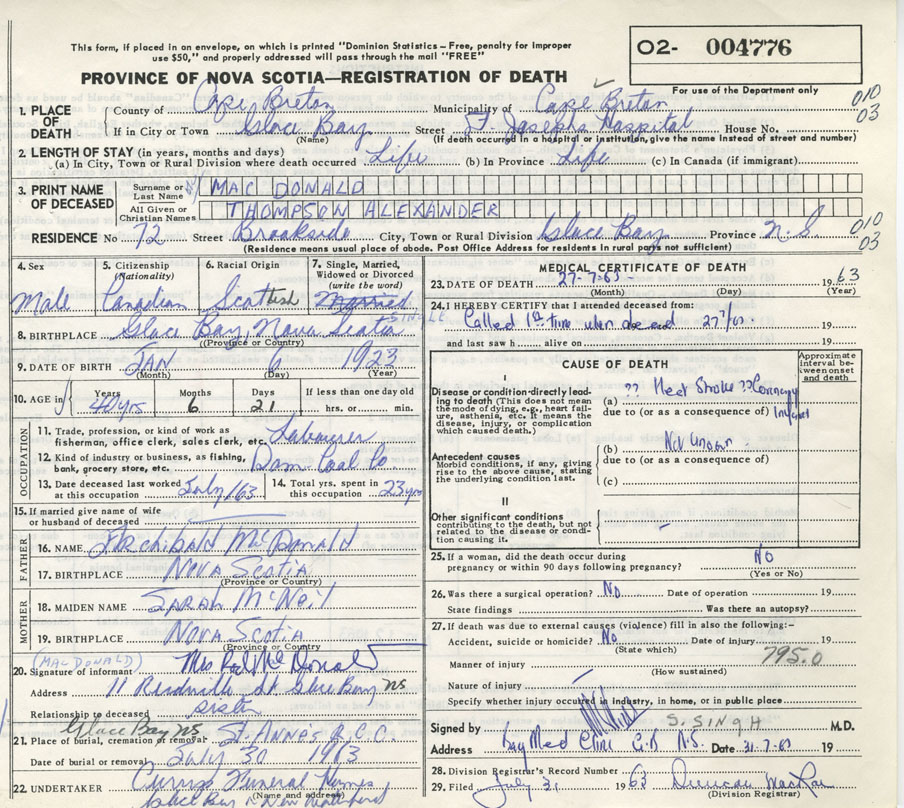 This form, if placed in an envelope, on which is printed "Dominion Statistics - Free, penalty for improper
use $50," and properly addressed will pass through the mail "FREE"
O2- 004776
For use of the Department only
PROVINCE OF NOVA SCOTIA—REGISTRATION OF DEATH
1. PLACE OF DEATH
County of Cape Breton Municipality of Cape Breton 010
If in City or Town Glace Bay Street St. Josephs Hospital House No. 03
(Name) (If death occurred in a hospital or institution, give the name instead of street and number)
2. LENGTH OF STAY (in years, months and days)
(a) In City, Town or Rural Division where death occurred Life (b) In Province Life (c) In Canada (if immigrant)
3. PRINT NAME OF DECEASED
Surname or Last Name MAC DONALD
All Given or Christian Names THOMPSON ALEXANDER
RESIDENCE No 72 Street Brookside City, Town or Rural Division Glace Bay Province N.S. 010 03
(Residence means usual place of abode. Post Office Address for residents in rural parts not sufficient)
4. Sex 5. Citizenship (Nationality) 6. Racial Origin 7. Single, Married, Widowed or Divorced (write the word)
Male Canadian Scottish Married SINGLE
8. BIRTHPLACE Glace Bay, Nova Scotia
(Province or Country)
9. DATE OF BIRTH JAN 6 1923
(Month) (Day) (Year)
10. AGE Years Months Days If less than one day old
40 yrs 6 21 hrs. or min.
OCCUPATION
11. Trade, profession, or kind of work as fisherman, office clerk, sales clerk, etc. Labourer
12. Kind of industry or business, as fishing, bank, grocery store, etc. Dom Coal Co
13. Date deceased last worked at this occupation July/63 14. Total yrs. spent in this occupation 23 yrs
15. If married give name of wife or husband of deceased
FATHER
16. NAME Archibald MacDonald
17. BIRTHPLACE NOVA SCOTIA
(Province or Country)
MOTHER
18. MAIDEN NAME SARAH McNeil
19. BIRTHPLACE NOVA SCOTIA
(Province or Country)
(MACDONALD)
20. Signature of informant Mrs Donald
Address 11 St Glace Bay NS
Relationship to deceased sister
Glace Bay NS
21. Place of burial, cremation or removal St. Anne's R.C.C.
Date of burial or removal July 30 1963
22. UNDERTAKER Funeral Homes
(Name and address)
Glace Bay & New Waterford
MEDICAL CERTIFICATE OF DEATH
23. DATE OF DEATH 27-7-63 1963
(Month) (Day) (Year)
24. I HEREBY CERTIFY that I attended deceased from:
Called 1st time when deceased 27/7/63 19
and last saw h alive on 19
CAUSE OF DEATH
Approximate interval between onset and death
I
Disease or condition directly leading to death (This does not mean the mode of dying, e.g., heart failure, asthenia, etc. It means the disease, injury, or complication which caused death.)
(a) ?? Heat Stroke ?? Coronary
due to (or as a consequence of)
Antecedent causes
Morbid conditions, if any, giving rise to the above cause, stating the underlying condition last.
(b) Not known
due to (or as a consequence of)
(c)
II
Other significant conditions
contributing to the death, but not related to the disease or condition causing it. -
25. If a woman, did the death occur during pregnancy or within 90 days following pregnancy? NO
(Yes or No)
26. Was there a surgical operation? No Date of operation 19
State findings Was there an autopsy?
27. If death was due to external causes (violence) fill in also the following:-
Accident, suicide or homicide? No Date of injury 19
(State which)
795.0
Manner of injury
(How sustained)
Nature of injury
Specify whether injury occurred in industry, in home, or in public place
Signed by S. SINGH M.D.
Address Bay Med Clinic G.B N.S. Date 31.7.63 19
28. Division Registrar's Record Number
29. Filed July 31 1963 Duncan
(Division Registrar)